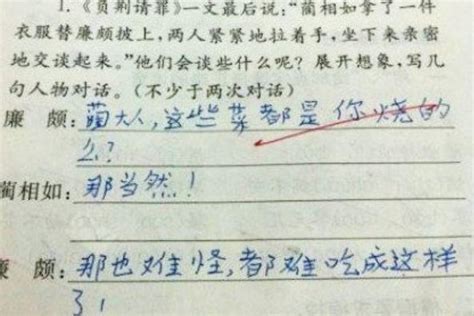 1.《负荆请罪》一文最后说:“蔺相如拿了一件
衣服替廉颇披上,两人紧紧地拉着手,坐下来亲密
地交谈起来。”他们会谈些什么呢?展开想象,写几
句人物对话。(不少于两次对话)
廉 颇:蔺大人,这些菜都是你烧的
么?
蔺相如:那当然!
廉 颇:那也难怪,都难吃成这样
了!